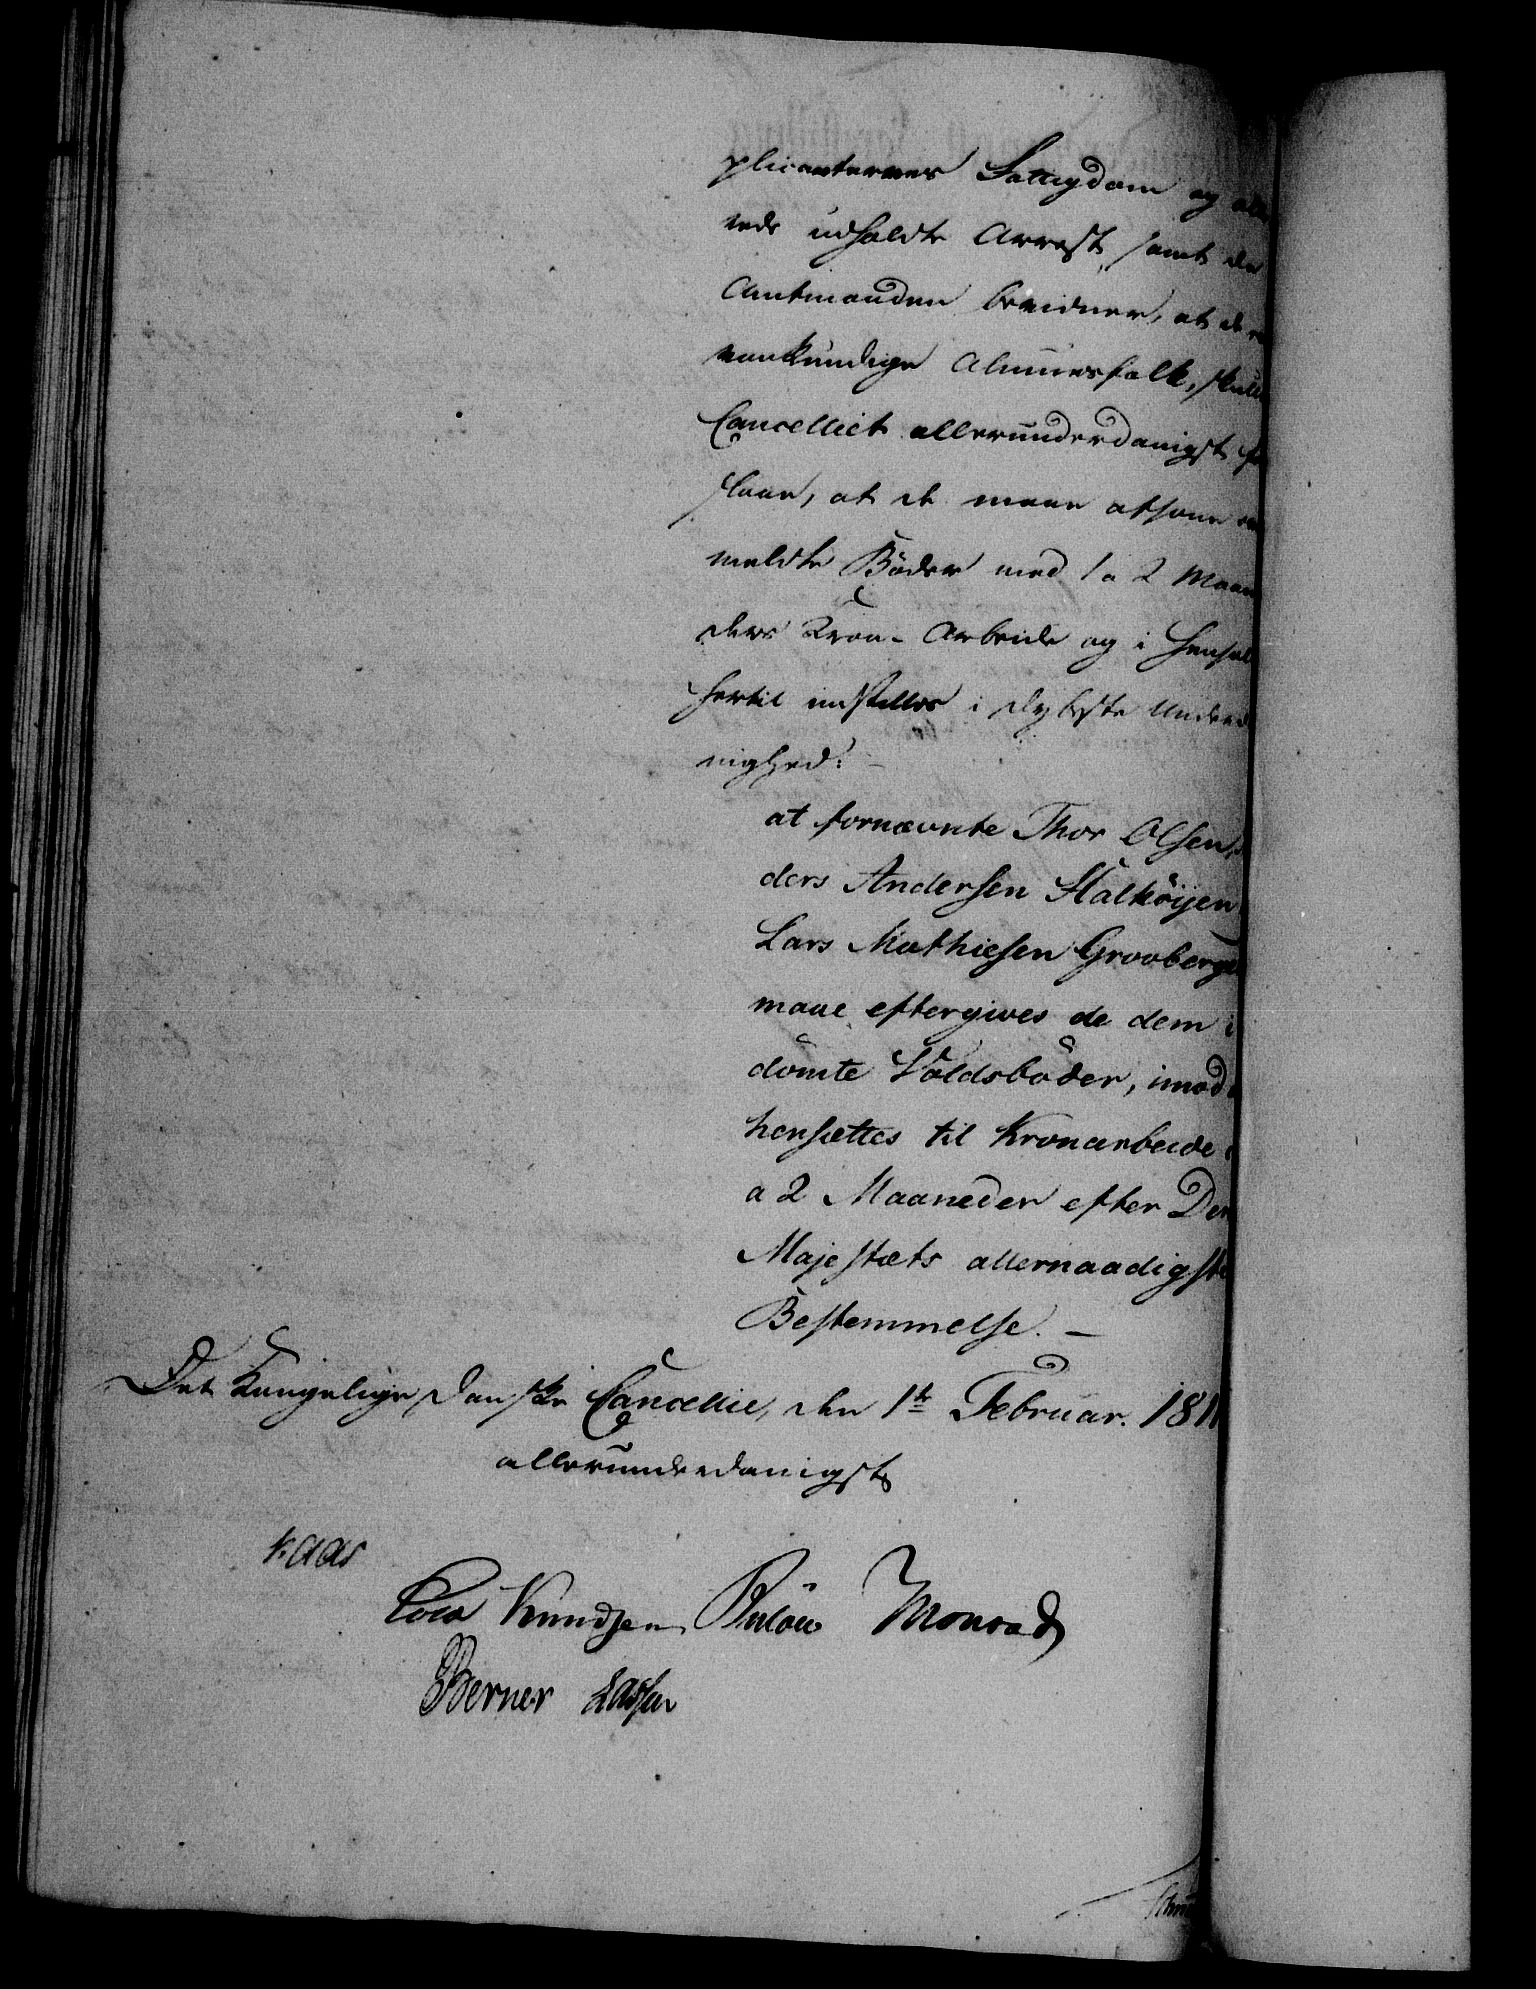 plicanternes Fattigdom og alle
rede udholdte Arrest, samt da
Amtmanden bevidner, at de ere
vankundige Almuesfolk, skulle
Cancelliet allerunderdanigst fore
slaae, at de maae afsone om
meldte Bøder med 1 a 2 Maane
ders Kron-Arbeide og i Henseende
hertil indstilles i dybeste Underda
nighed: —
at fornævnte Thor Olsen,
ders Andersen Stalkøijen
Lars Mathiesen Grooberget
maae eftergives de dem i
dømte Voldsbøder, imod
hensættes til Kronarbeide
a 2 Maaneder efter Deres
Majestæts allernaadigste
Bestemmelse. —
Det Kongelige danske Cancellie, den 1te Februar. 181
allerunderdanigst
Kaas
Cold Knudsen Bülow Monrad
Berner Lassen